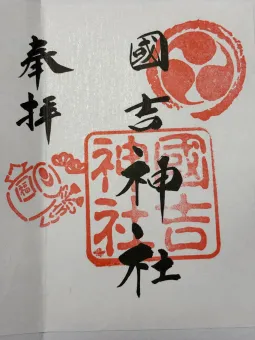 奉拝
國吉神社
國吉
神社